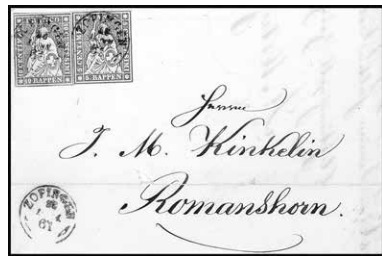 ZOFINGEN ZOFINGEN
10 RAPPEN. 5 RAPPEN.
Herrn
J. M. Kinkelin
Romanshorn.
ZOFINGEN
61